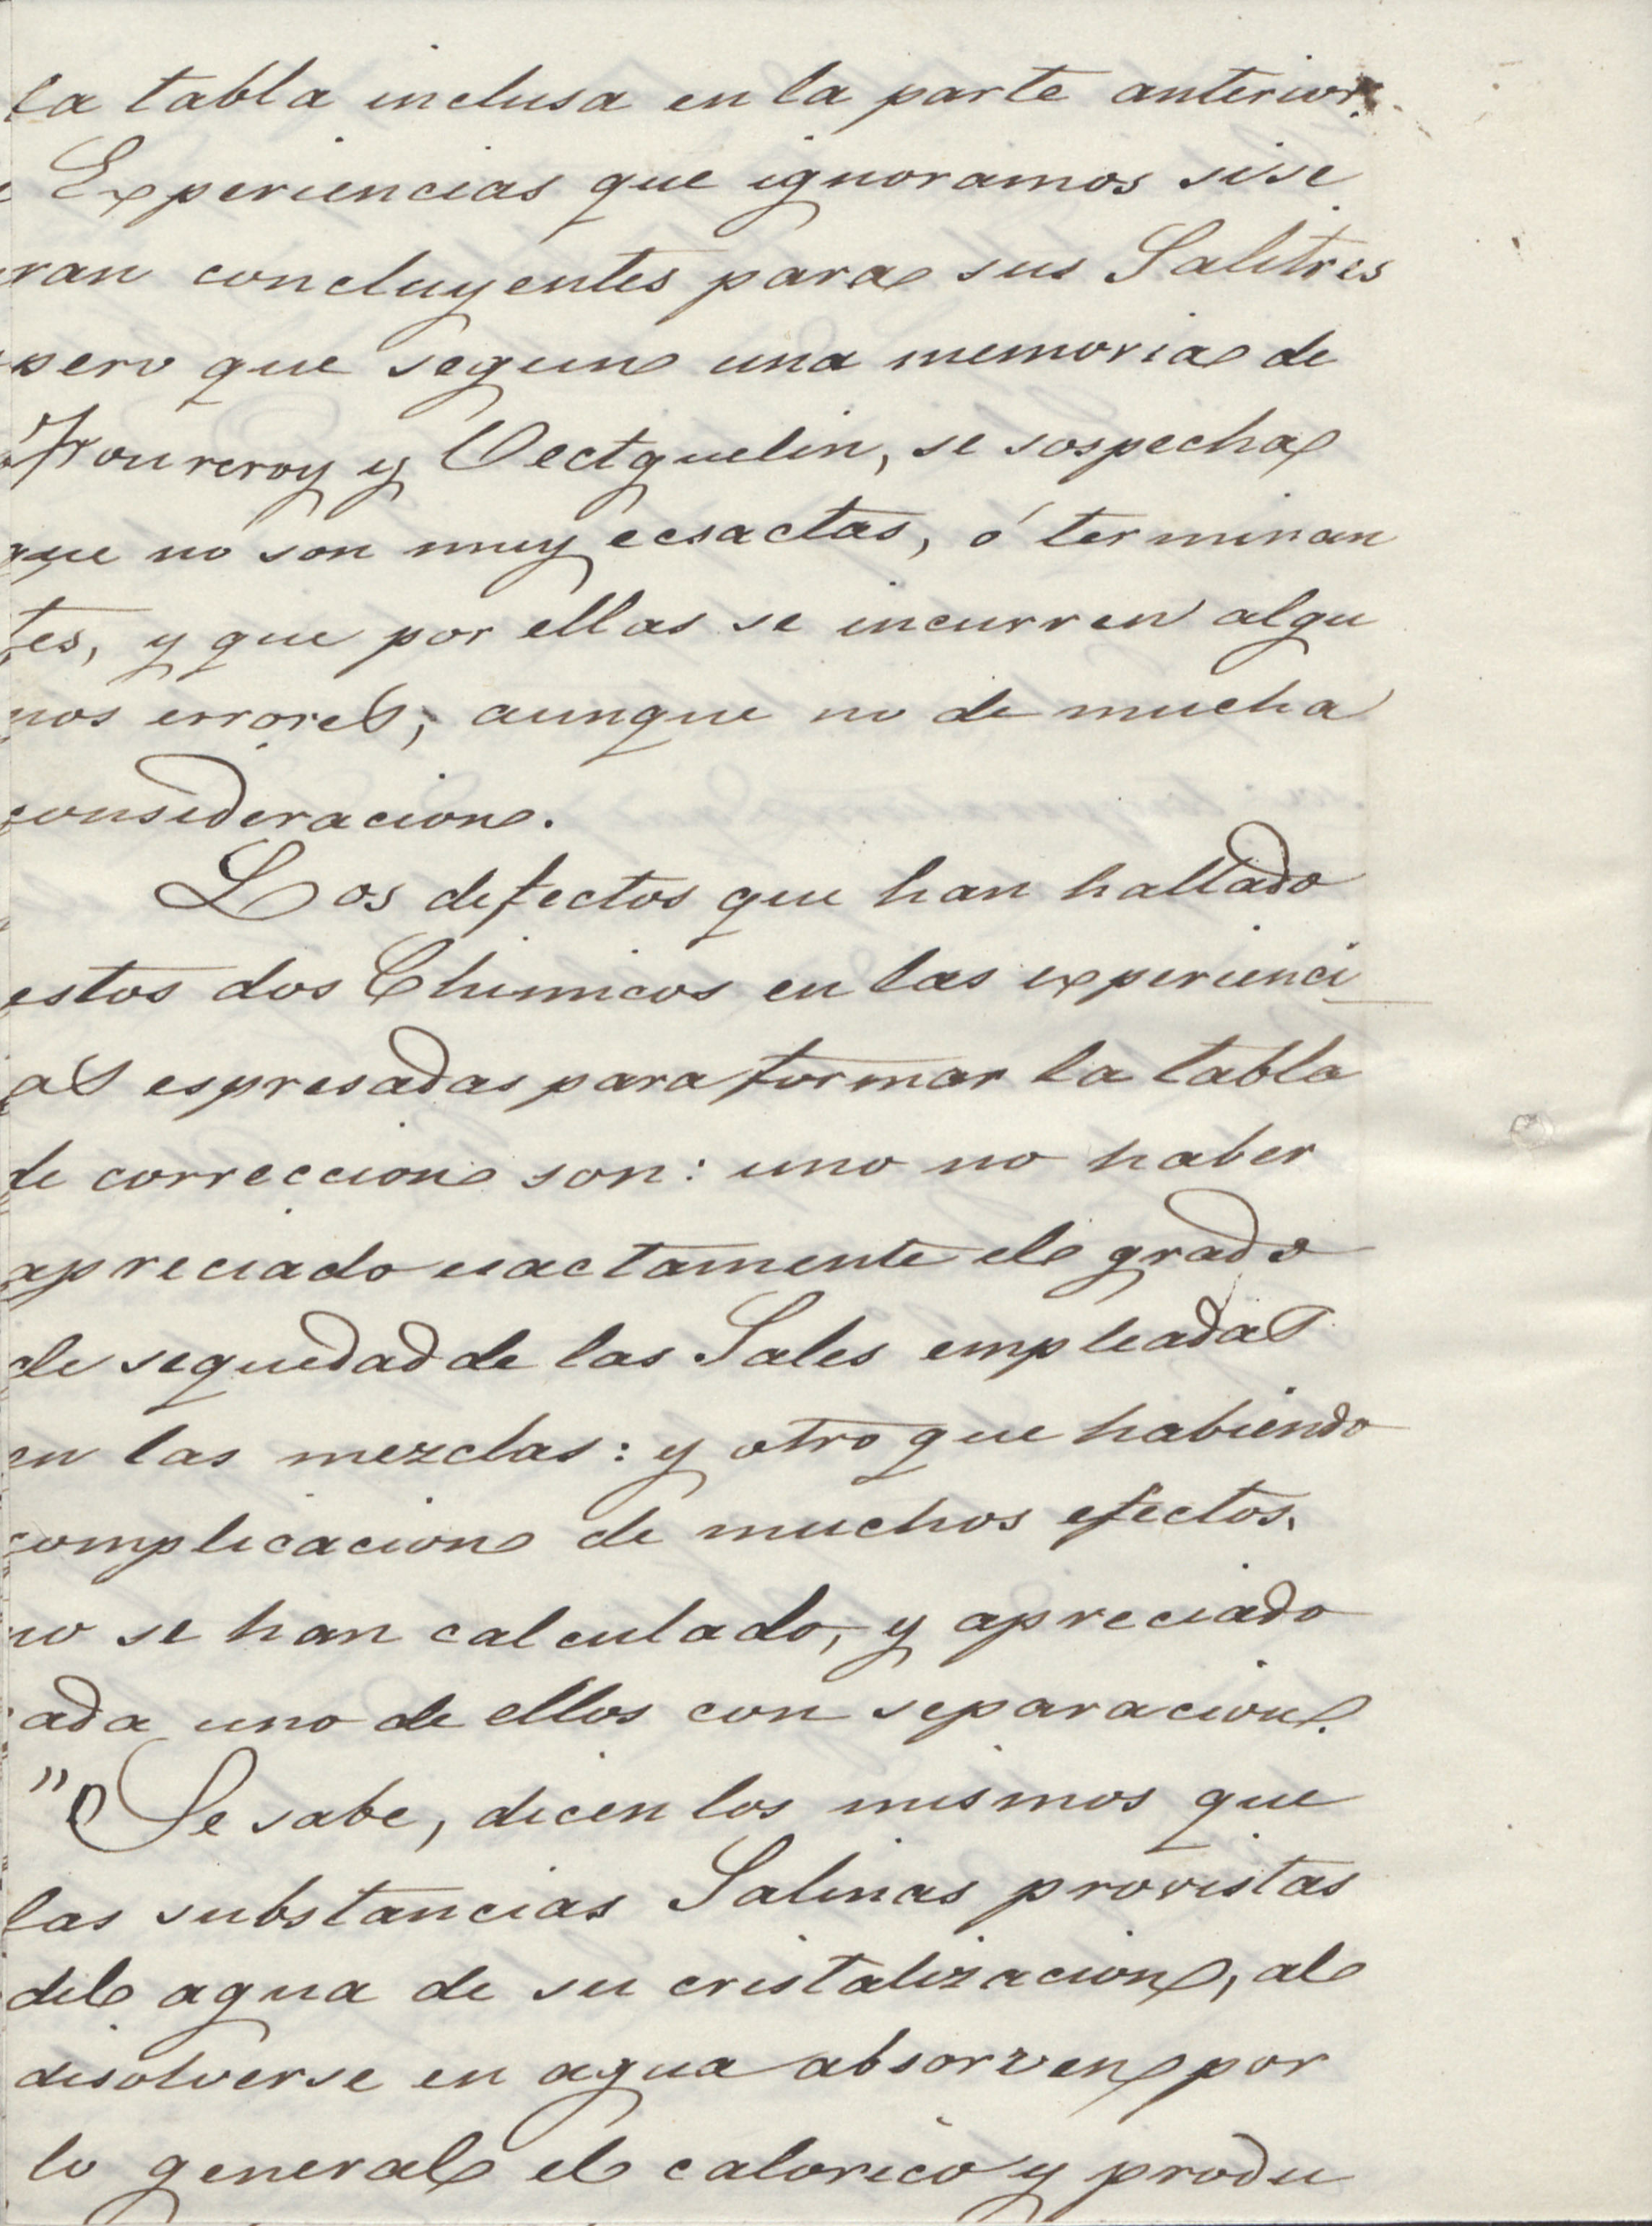 la tabla inclusa en la parte anterior.
Experiencias que ignoramos si se
ran concluyentes para sus Salitres
pero que segun una memoria de
Fourcroy y Vectquelin, se sospecha
que nó son muy ecsactas, ó terminan
tes, y que por ellas se incurren algu
nos errores; aunque no de mucha
consideracion.
Los defectos que han hallado
estos dos Chimicos en las experienci
as espresadas para formar la tabla
de correccion son: uno no haber
apreciado exactamente el grado
de sequedad de las Sales empleadas
en las mezclas: y otro que habiendo
complicacion de muchos efectos,
no se han calculado, y apreciado
cada uno de ellos con separacion.
"Se sabe, dicen los mismos que
las substancias Salinas provistas
del agua de su cristalizacion, al
disolverse en agua absorven por
lo general el calorico y produ